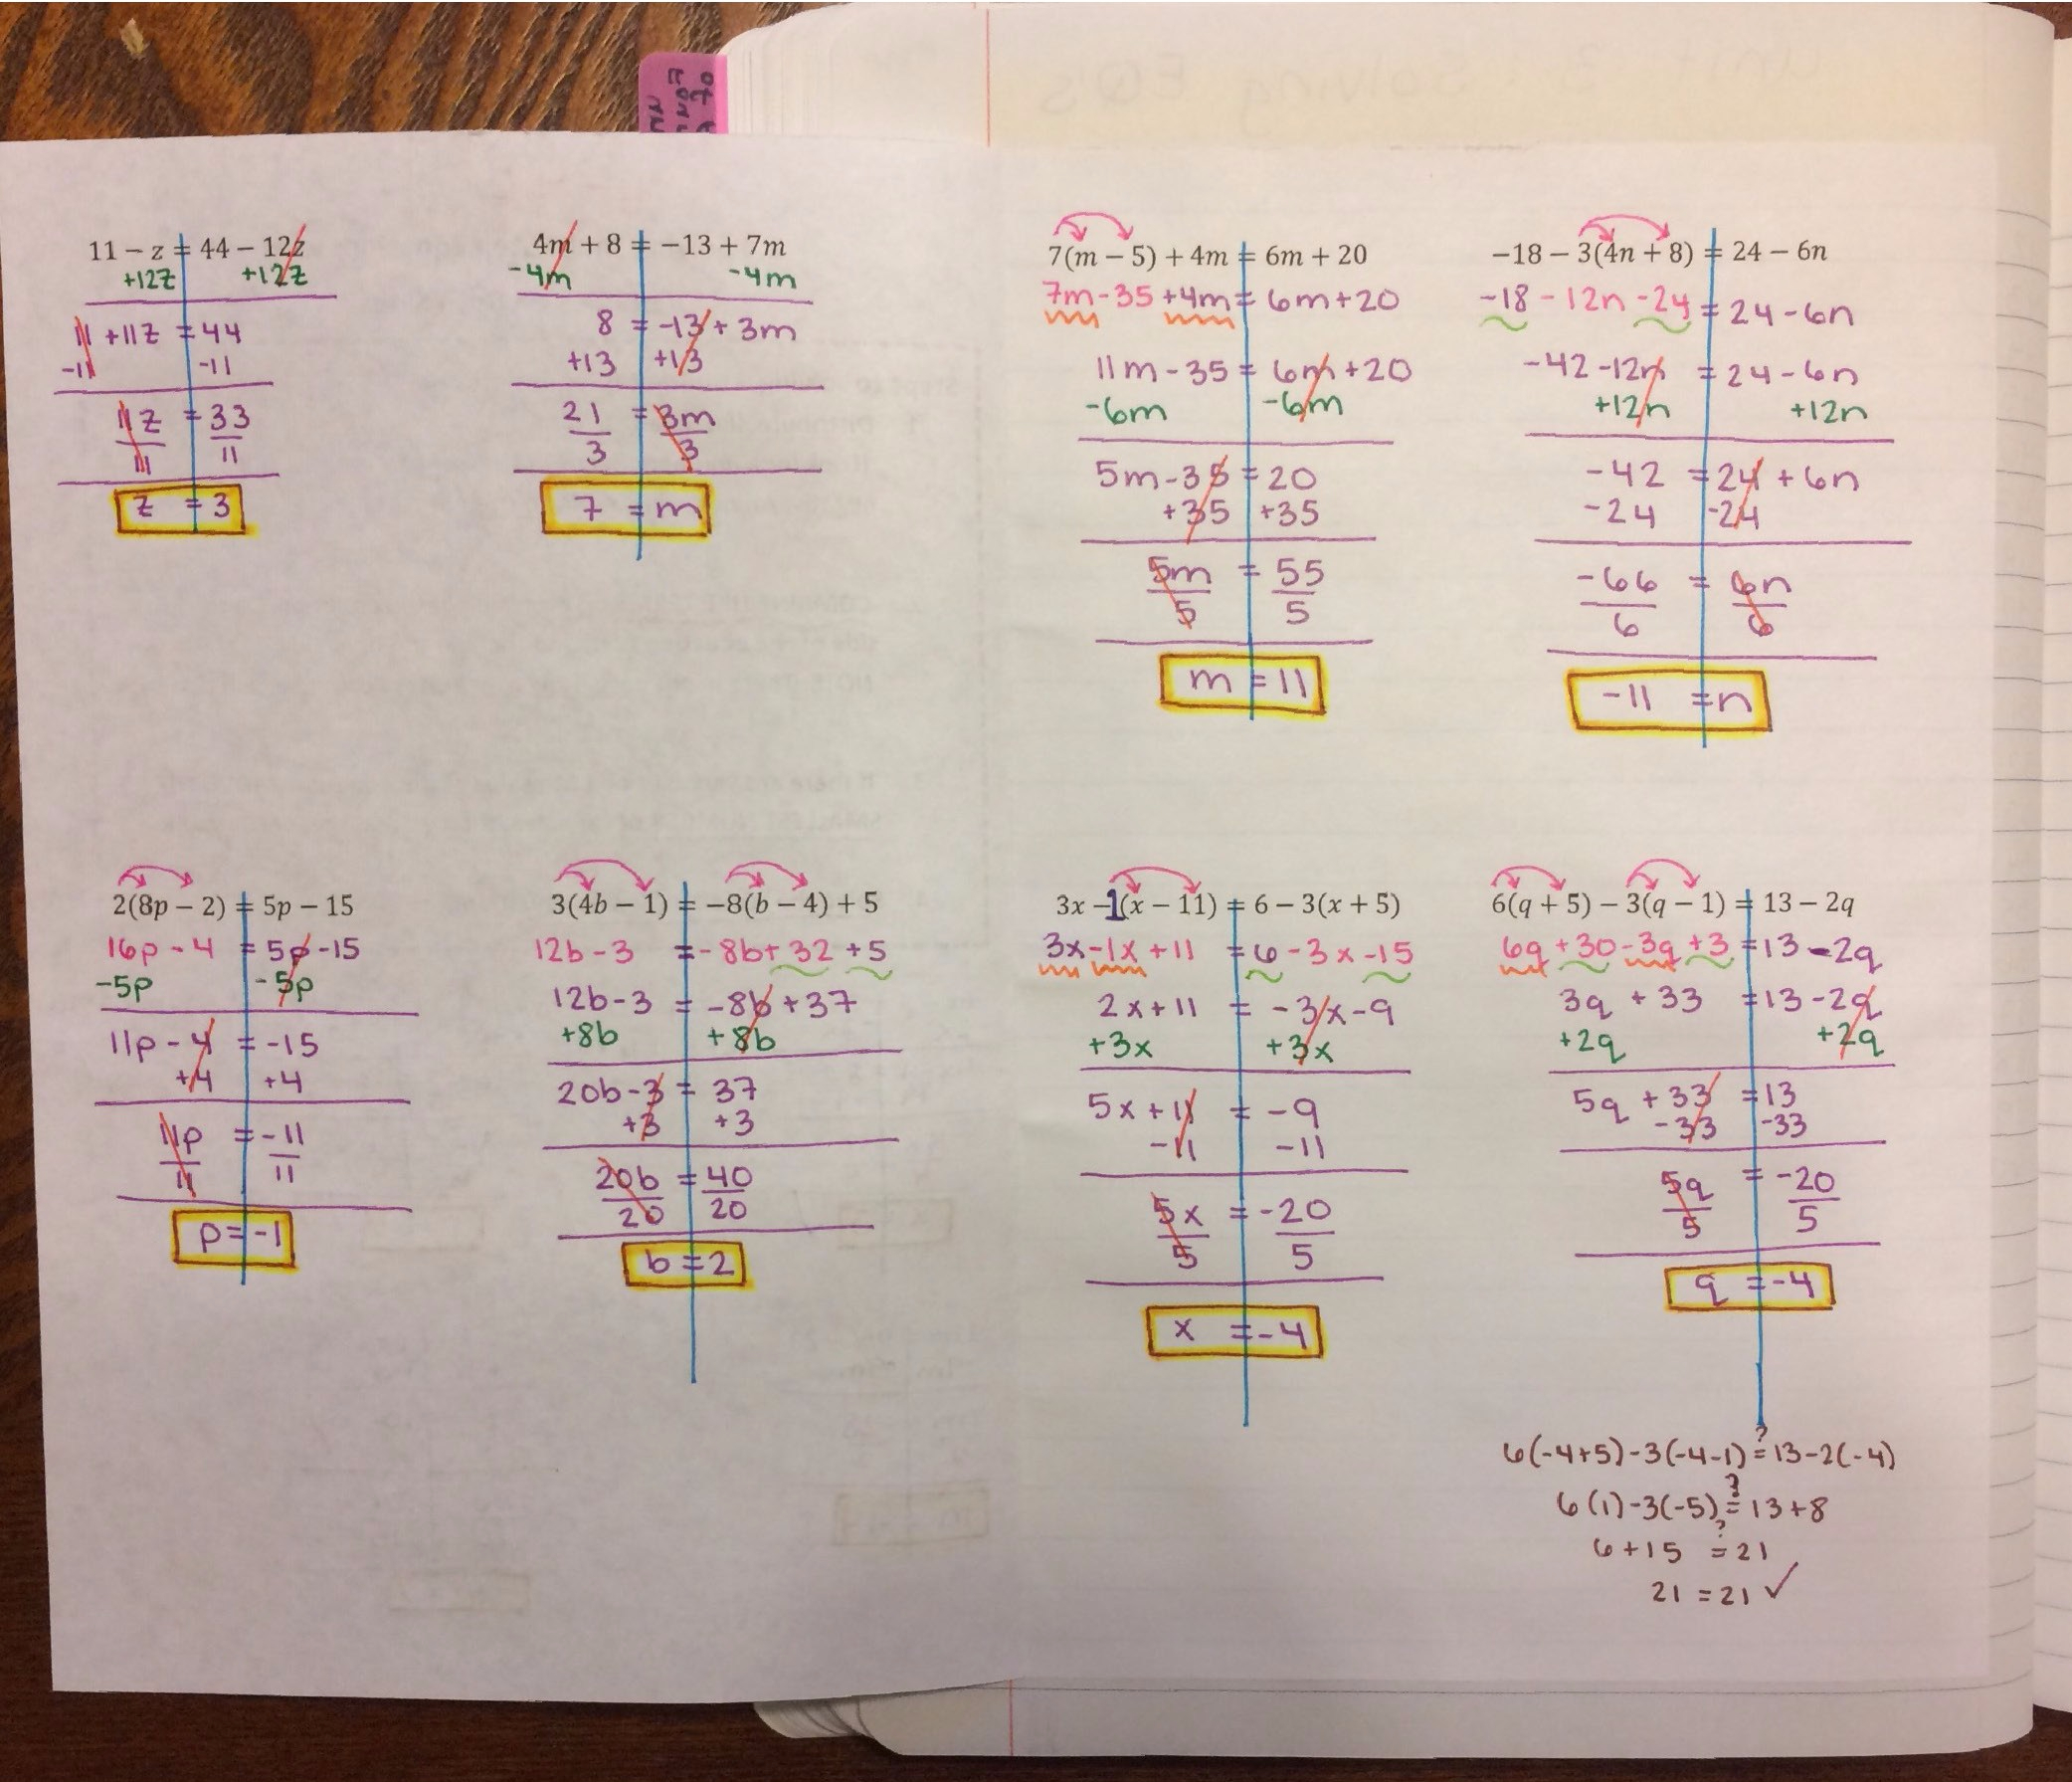 11 − z = 44 − 12z
+12z +12z
11 + 11z = 44
-11 -11
11z = 33
11 11
z = 3
4m + 8 = −13 + 7m
-4m -4m
8 = -13 + 3m
+13 +13
21 = 3m
3 3
7 = m
7(m − 5) + 4m = 6m + 20
7m - 35 + 4m = 6m + 20
11m - 35 = 6m + 20
-6m -6m
5m - 35 = 20
+35 +35
5m = 55
5 5
m = 11
−18 − 3(4n + 8) = 24 − 6n
-18 - 12n - 24 = 24 - 6n
-42 - 12n = 24 - 6n
+12n +12n
-42 = 24 + 6n
-24 -24
-66 = 6n
6 6
-11 = n
2(8p − 2) = 5p − 15
16p - 4 = 5p - 15
-5p -5p
11p - 4 = -15
+4 +4
11p = -11
11 11
p = -1
3(4b − 1) = −8(b − 4) + 5
12b - 3 = -8b + 32 + 5
12b - 3 = -8b + 37
+8b +8b
20b - 3 = 37
+3 +3
20b = 40
20 20
b = 2
3x − 1(x − 11) = 6 − 3(x + 5)
3x - 1x + 11 = 6 - 3x - 15
2x + 11 = -3x - 9
+3x +3x
5x + 11 = -9
-11 -11
5x = -20
5 5
x = -4
6(q + 5) − 3(q − 1) = 13 − 2q
6q + 30 - 3q + 3 = 13 - 2q
3q + 33 = 13 - 2q
+2q +2q
5q + 33 = 13
-33 -33
5q = -20
5 5
q = -4
?
6(-4+5) - 3(-4-1) = 13 - 2(-4)
?
6(1) - 3(-5) = 13 + 8
?
6 + 15 = 21
21 = 21 ✓